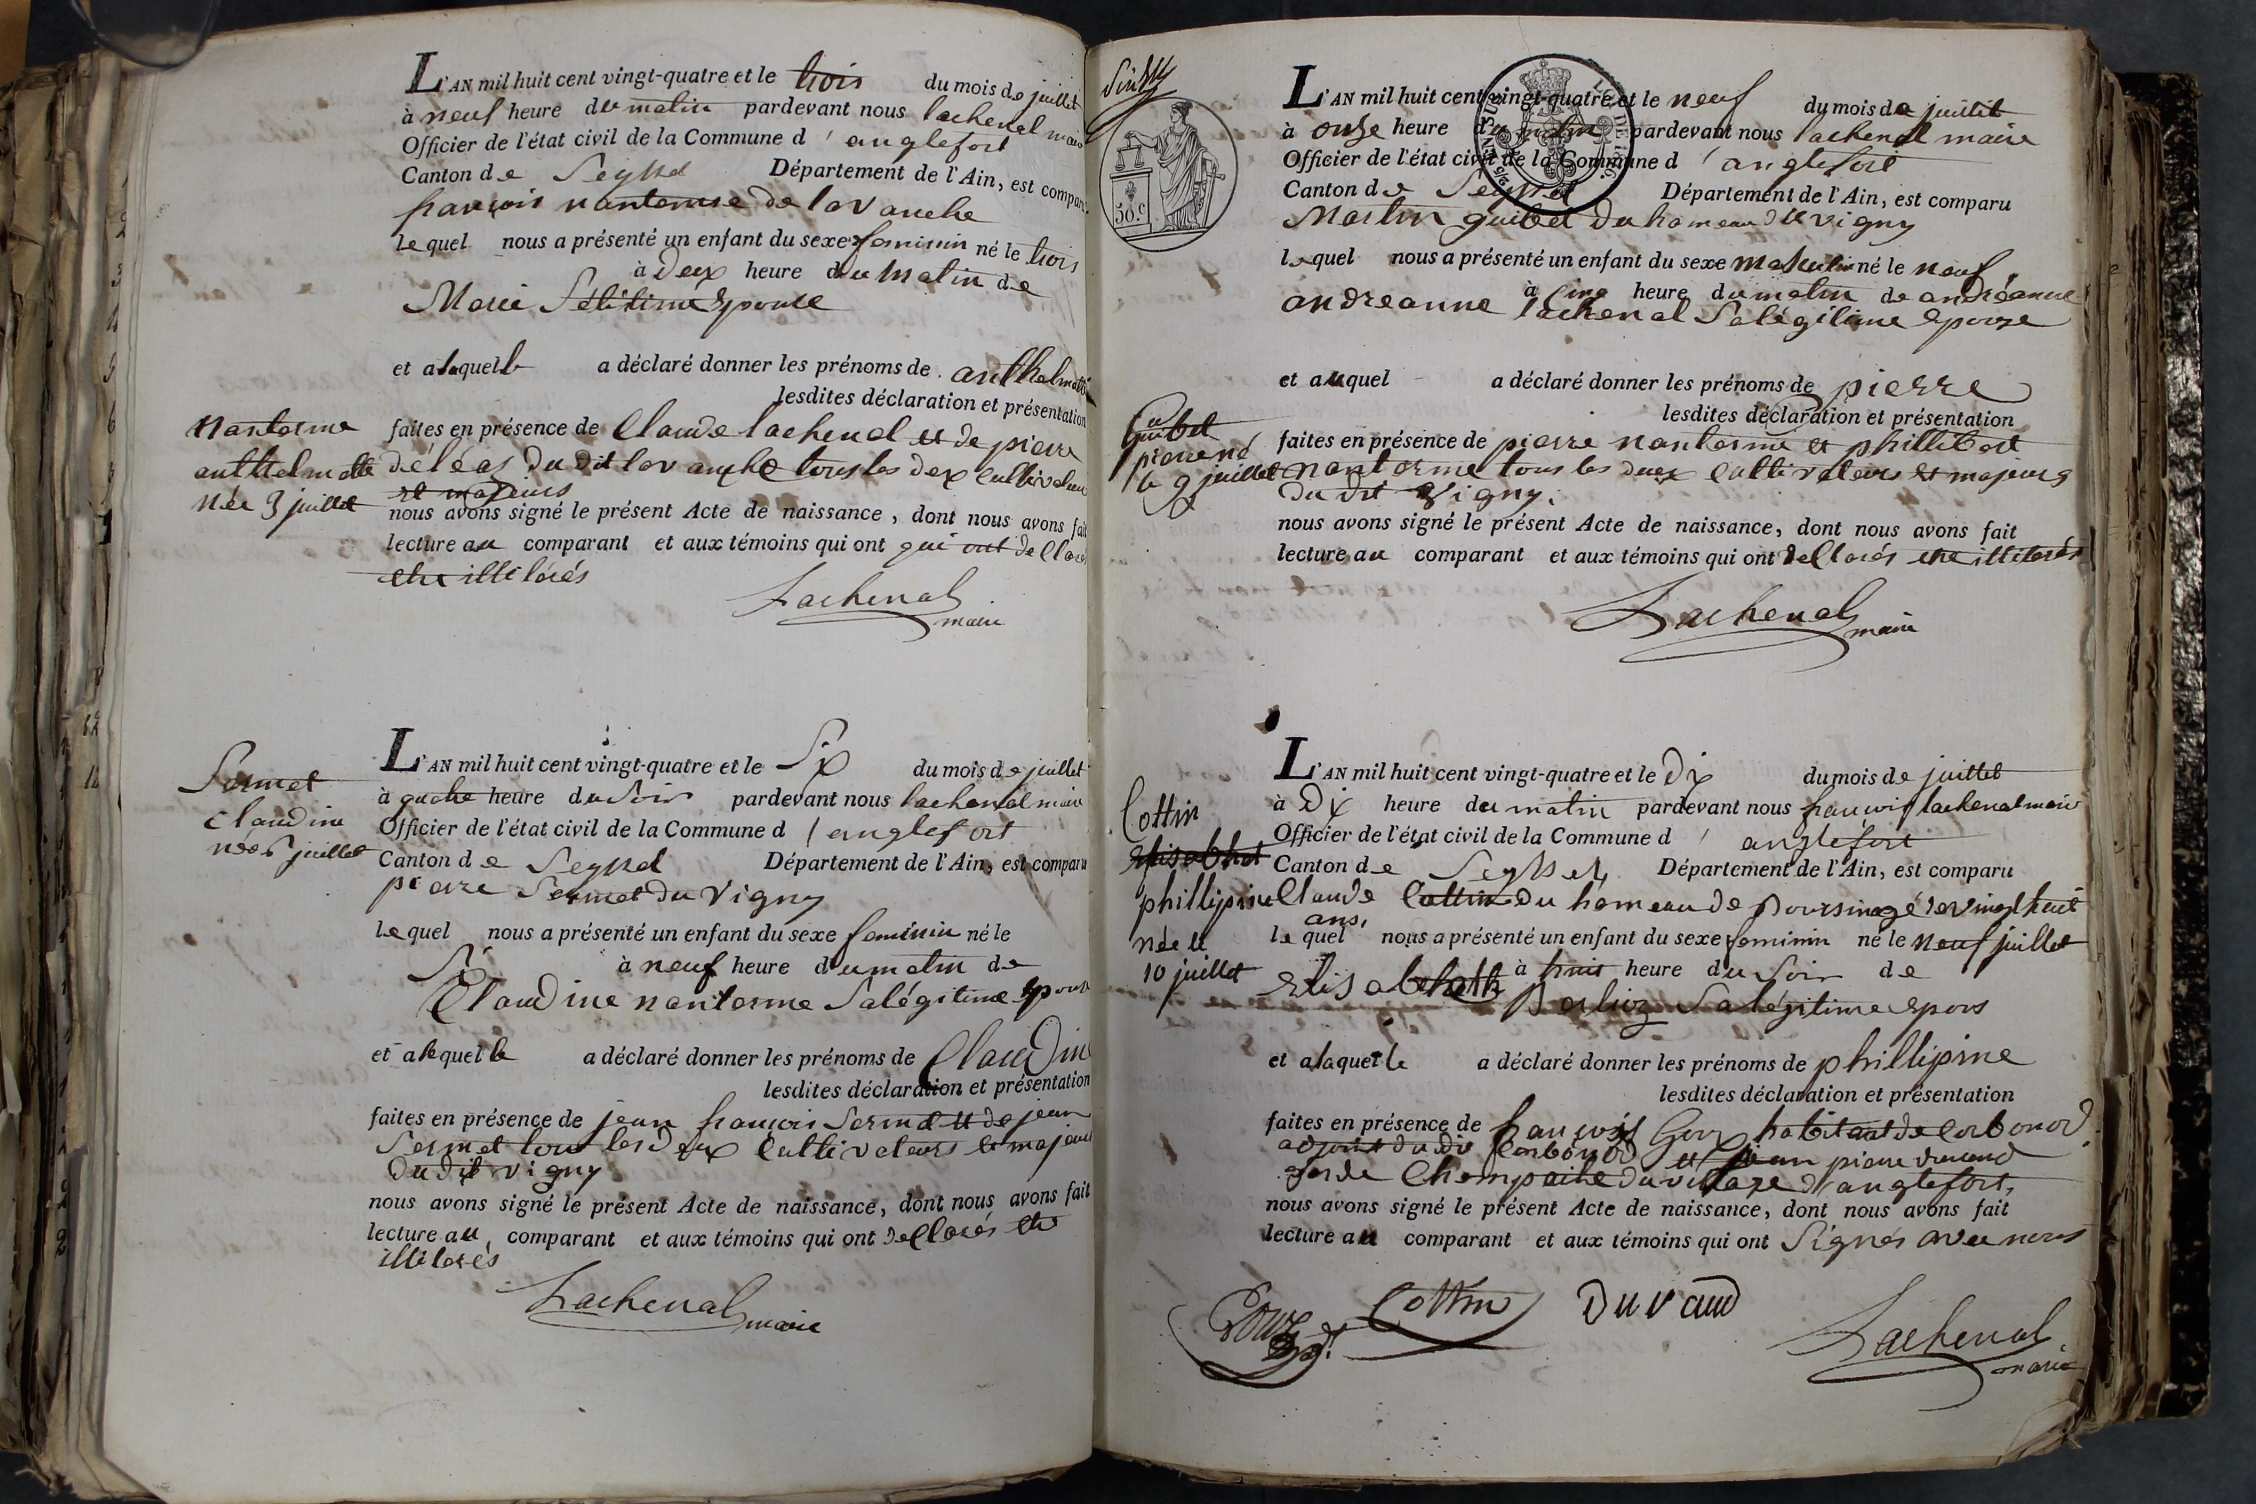 L'AN mil huit cent vingt-quatre et le trois du mois de juillet
à neuf heure du matin pardevant nous lachenal maire
Officier de l'état civil de la Commune d'anglefort
Canton de Seyssel Département de l'Ain, est comparu
françois nanterme de lavanche
lequel nous a présenté un enfant du sexe feminin né le trois
à deux heure du matin de
Marie Sa légitime Epouse
et a laquelle a déclaré donner les prénoms de anthelmette
lesdites déclaration et présentation
nanterme
anthelmette
née 3 juillet
faites en présence de Claude lachenal et de pierre
déléas du dit lavanche tous les dex cultivateurs
et majeurs
nous avons signé le présent Acte de naissance, dont nous avons fait
lecture au comparant et aux témoins qui ont qui ont dellarés
etre illiterés
Lachenal
maire
Sermet
claudine
née 6 juillet
L'AN mil huit cent vingt-quatre et le Six du mois de juillet
à quatre heure du soir pardevant nous lachenal maire
Officier de l'état civil de la Commune d'anglefort
Canton de Seyssel Département de l'Ain, est comparu
pierre Sermet du vigny
lequel nous a présenté un enfant du sexe feminin né le
Six à neuf heure du matin de
Claudine nanterme Sa légitime Epouse
et a lequelle a déclaré donner les prénoms de Claudine
lesdites déclaration et présentation
faites en présence de jean françois Sermet et de jean
Sermet tous les deux cultivateurs et majeurs
du dit vigny
nous avons signé le présent Acte de naissance, dont nous avons fait
lecture au comparant et aux témoins qui ont dellarés etre
illiterés
Lachenal
maire
50.c
L'AN mil huit cent vingt-quatre et le neuf du mois de juillet
à onze heure du matin pardevant nous lachenal maire
Officier de l'état civil de la Commune d'anglefort
Canton de Seyssel Département de l'Ain, est comparu
Martin guibet du hameau de vigny
lequel nous a présenté un enfant du sexe masculin né le neuf
à cinq heure du matin de andréanne
andreanne lachenal Sa légitime epouze
et auquel a déclaré donner les prénoms de pierre
lesdites déclaration et présentation
Guibet
pierre né
le 9 juillet
faites en présence de pierre nanterme et phillibert
nanterme tous les deux cultivateurs et majeurs
du dit vigny.
nous avons signé le présent Acte de naissance, dont nous avons fait
lecture au comparant et aux témoins qui ont dellarés etre illiterés
Lachenal
maire
Cottin
Elisabhet
phillipine
née le
10 juillet
L'AN mil huit cent vingt-quatre et le Dix du mois de juillet
à Dix heure du matin pardevant nous françois lachenal maire
Officier de l'état civil de la Commune d'anglefort
Canton de Seyssel Département de l'Ain, est comparu
Claude Cottin du hameau de Boursin agé de vingt huit
ans,
lequel nous a présenté un enfant du sexe feminin né le neuf juillet
à huit heure du soir de
Elisabehath Berlioz Sa légitime epous
et a laquelle a déclaré donner les prénoms de phillipine
lesdites déclaration et présentation
faites en présence de françois Gouz habitant de Corbonod
adjoint du dit Corbonod et jean pierre durand
garde Champaitre du village d'anglefort,
nous avons signé le présent Acte de naissance, dont nous avons fait
lecture au comparant et aux témoins qui ont Signés avec nous
Gouz
Cottin
Duraud
Lachenal
maire